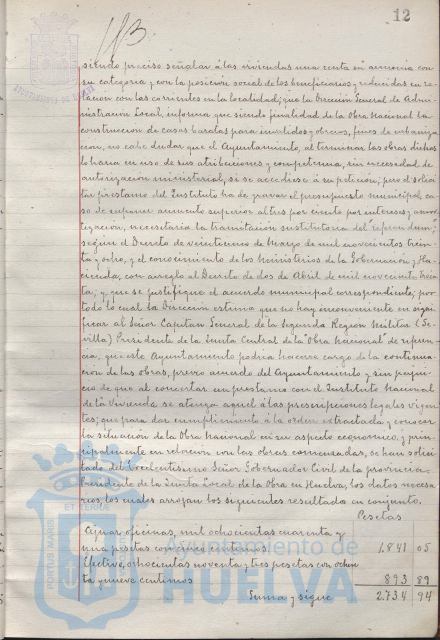 12
siendo preciso señalar á las viviendas una renta en armonía con
su categoría y con la posición social de los beneficiarios, reducidas en re-
lación con las corrientes en la localidad; que la Dirección General de Admi-
nistración Local, informa que siendo finalidad de la Obra Nacional la
construcción de casas baratas para inválidos y obreros, fines de urbaniza-
ción, no cabe dudar que el Ayuntamiento, al terminar las obras dichas
lo haría en uso de sus atribuciones y competencia, sin necesidad de
autorización ministerial, si se accediese á su petición; pero si el solici-
tar préstamo del Instituto ha de gravar el presupuesto municipal, ca-
so de suponer aumento superior al tres por ciento por intereses y amor-
tización, necesitaría la tramitación sustitutoria del referendum,
según el Decreto de veinticinco de Marzo de mil novecientos trein-
ta y ocho, y el conocimiento de los Ministerios de la Gobernación y Ha-
cienda, con arreglo al Decreto de dos de Abril de mil novecientos trein-
ta; y que se justifique el acuerdo municipal correspondiente; por
todo lo cual la Dirección estima que no hay inconveniente en signi-
ficar al Señor Capitán General de la Segunda Región Militar (Se-
villa) Presidente de la Junta Central de la "Obra Nacional" de referen-
cia, que este Ayuntamiento podría hacerse cargo de la continua-
ción de las obras, previo acuerdo del Ayuntamiento y sin perjui-
cio de que al concertar un préstamo con el Instituto Nacional
de la Vivienda se atenga aquel á las prescripciones legales vigen-
tes; que para dar cumplimiento á la orden extractada y conocer
la situación de la Obra Nacional en su aspecto económico, y prin-
cipalmente en relación con las obras comenzadas, se han solici-
tado del Excelentísimo Señor Gobernador Civil de la provincia
Presidente de la Junta Local de la Obra en Huelva, los datos necesa-
rios, los cuales arrojan los siguientes resultados en conjunto.
Pesetas
Ajuar, oficinas, mil ochocientas cuarenta y
una pesetas con cinco céntimos 1.841 05
Efectivo, ochocientas noventa y tres pesetas con ochen-
ta y nueve céntimos 893 89
Suma y sigue 2.734 94
PORTUS MARIS ET TERRAE
Ayuntamiento de
HUELVA